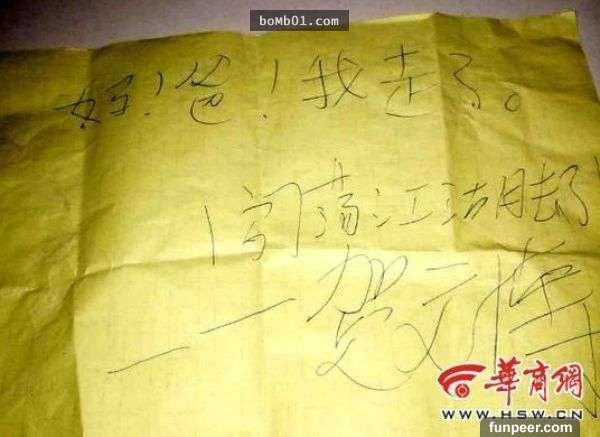 boMb01.com
妈！爸！我走了。
闯荡江湖去了
——贺文
華商網
WWW.HSW.CN
funpeer.com